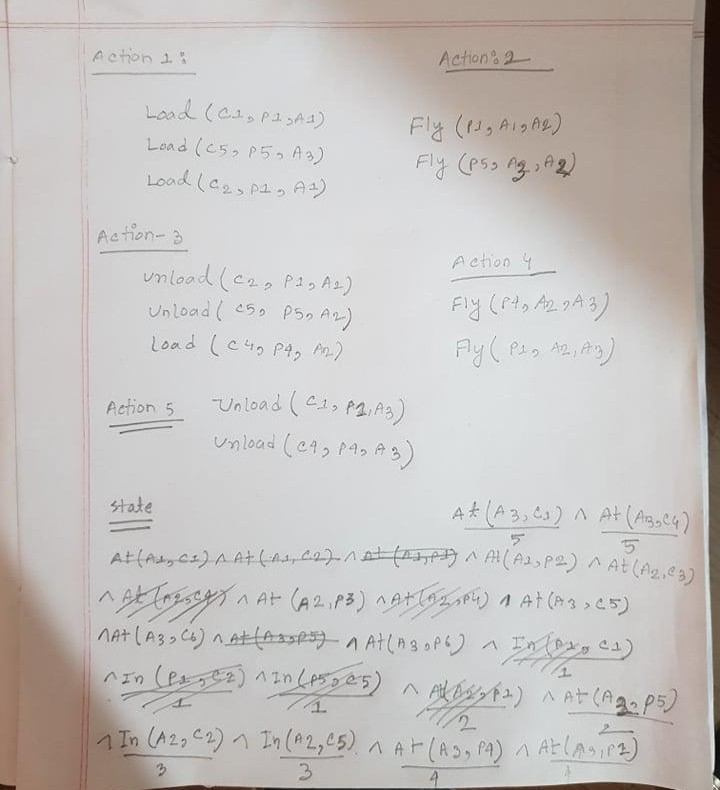 Action 1:
Load (C1, P1, A1)
Load (C5, P5, A3)
Load (C2, P1, A1)
Action: 2
Fly (P1, A1, A2)
Fly (P5, A3, A2)
Action- 3
Unload (C2, P1, A2)
Unload ( C5, P5, A2)
Load ( C4, P4, A2)
Action 4
Fly (P4, A2, A3)
Fly ( P1, A2, A3)
Action 5 Unload ( C1, P1, A3)
Unload (C4, P4, A3)
State
At (A3, C1) ∧ At (A3, C4)
5 5
At (A1, C1) ∧ At (A1, C2) ∧ At (A1, P1) ∧ At (A1, P2) ∧ At (A2, C3)
∧ At (A2, C4) ∧ At (A2, P3) ∧ At (A2, P4) ∧ At (A3, C5)
∧ At (A3, C6) ∧ At (A3, P5) ∧ At (A3, P6) ∧ In (P1, C1)
1
∧ In (P1, C2) ∧ In (P5, C5) ∧ At (A2, P1) ∧ At (A2, P5)
1 1 2 2
∧ In (A2, C2) ∧ In (A2, C5) ∧ At (A3, P4) ∧ At (A3, P1)
3 3 4 4